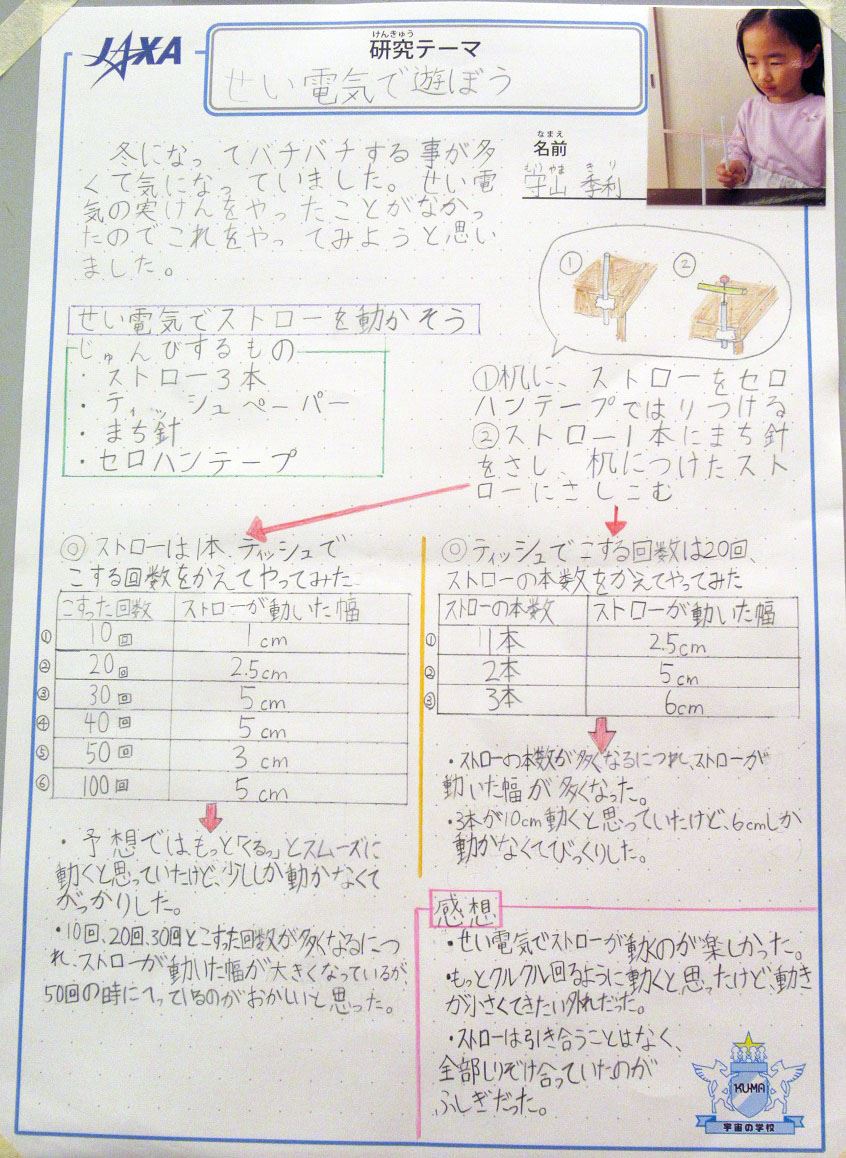 JAXA
けんきゅう
研究テーマ
せい電気で遊ぼう
なまえ
名前
もりやま きり
守山 季利
冬になってバチバチする事が多
くて気になっていました。せい電
気の実けんをやったことがなかっ
たのでこれをやってみようと思い
ました。
① ②
せい電気でストローを動かそう
じゅんびするもの
・ストロー3本
・ティッシュペーパー
・まち針
・セロハンテープ
①机に、ストローをセロ
ハンテープではりつける
②ストロー1本にまち針
をさし、机につけたスト
ローにさしこむ
◎ストローは1本、ティッシュで
こする回数をかえてやってみた
こすった回数 ストローが動いた幅
① 10回 1cm
② 20回 2.5cm
③ 30回 5cm
④ 40回 5cm
⑤ 50回 3cm
⑥ 100回 5cm
・予想では、もっと「くるっ」とスムーズに
動くと思っていたけど、少ししか動かなくて
がっかりした。
・10回、20回、30回とこすった回数が多くなるにつ
れ、ストローが動いた幅が大きくなっているが、
50回の時にへっているのがおかしいと思った。
◎ティッシュでこする回数は20回、
ストローの本数をかえてやってみた
ストローの本数 ストローが動いた幅
① 1本 2.5cm
② 2本 5cm
③ 3本 6cm
・ストローの本数が多くなるにつれ、ストローが
動いた幅が多くなった。
・3本が10cm動くと思っていたけど、6cmしか
動かなくてびっくりした。
感想
・せい電気でストローが動くのが楽しかった。
・もっとクルクル回るように動くと思ったけど、動き
が小さくてきたい外れだった。
・ストローは引き合うことはなく、
全部しりぞけ合っていたのが
ふしぎだった。
KUMA
宇宙の学校